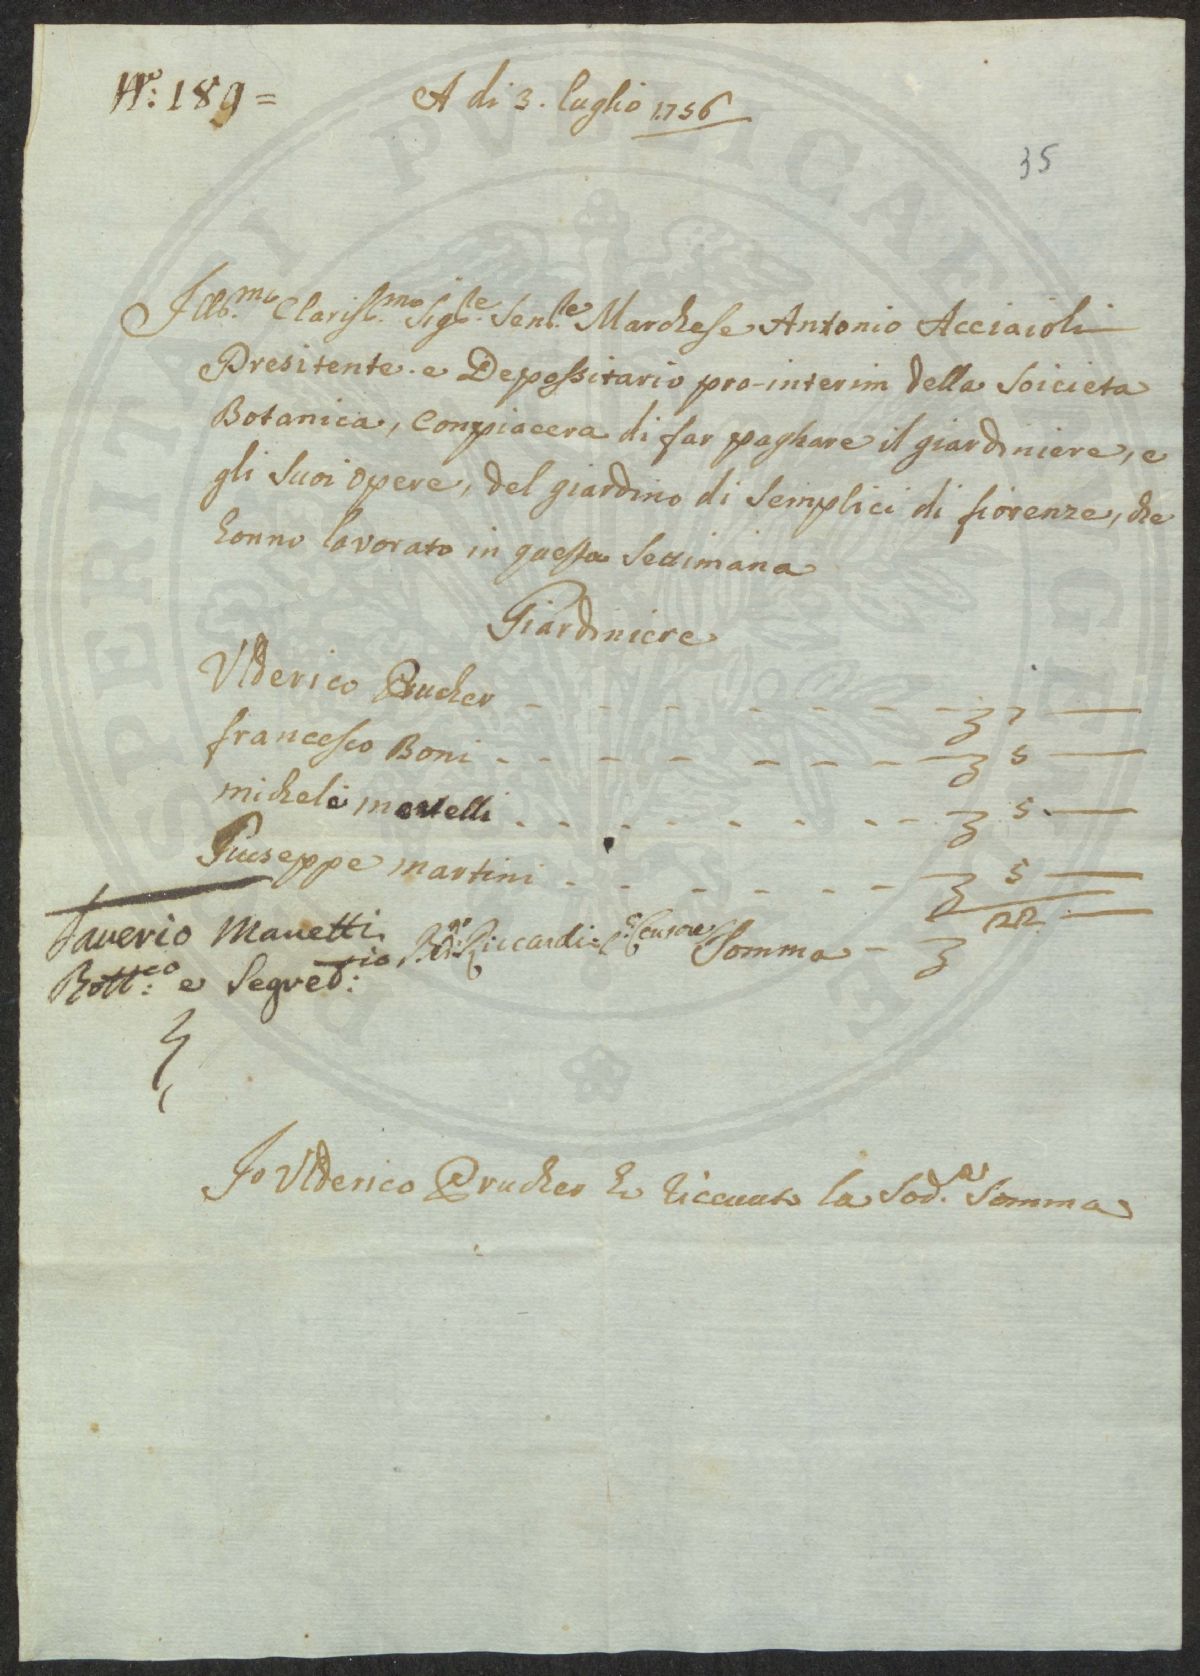 N.º: 189 =
A di 3. luglio 1756
35
Ill.mo Claris.mo Sig.re Sen.re Marchese Antonio Acciaioli
Presitente e Depossitario pro-interim della Soicieta
Botanica, Conpiacera di far paghare il giardiniere, e
gli suoi opere, del giardino di Semplici di fiorenze, che
honno lavorato in questa Settimana
Giardiniere
Ulderico Prucher - - - - - - - - 7 —
francesco Boni - - - - - - - - 5 —
michele martelli - - - - - - - - 5 —
Giuseppe martini - - - - - - - 5 —
Saverio Manetti
Bott.co e Segret.rio
Riccardi
Somma - 22 —
Io Ulderico Prucher ho riceuuto la Sod.a Somma
PERITATI PVBLICAE